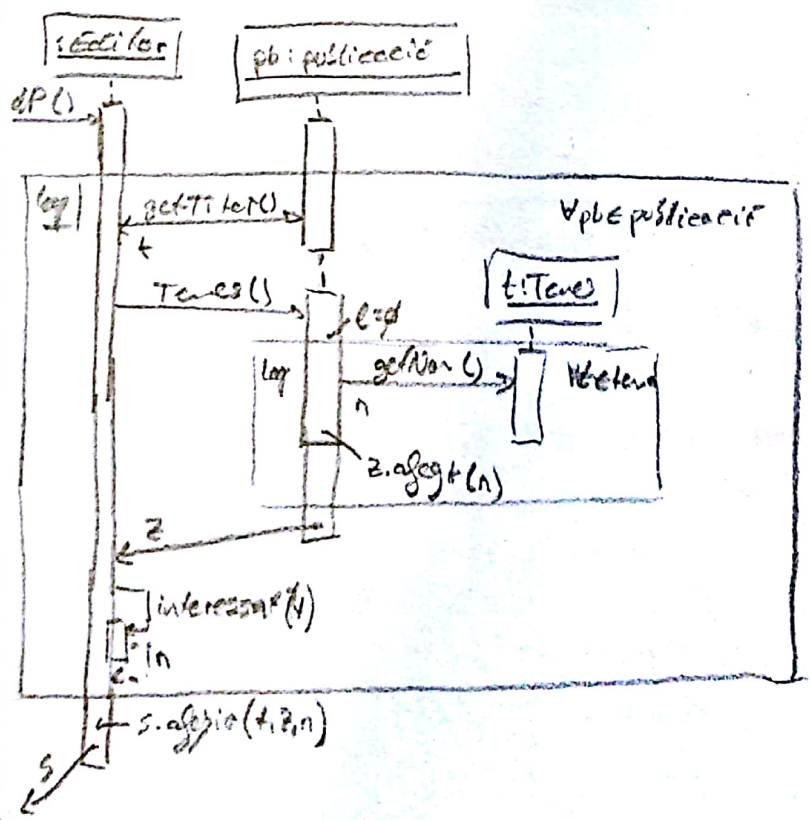 :Editor
pb : publicació
dP()
loop
getTitol()
∀pb∈publicació
t
Temes()
t:Tema
loop
getNom()
n
z.afegt(n)
z
interessat(
in
s.afegir(t,z,n)
s